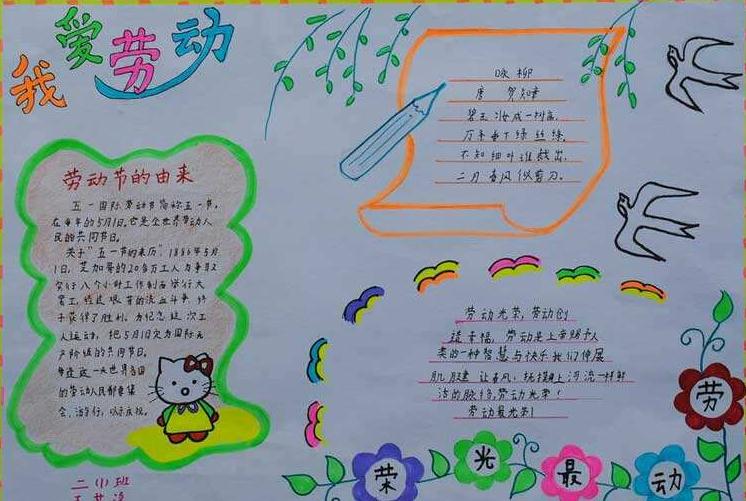 我爱劳动
劳动节的由来
五一国际劳动节简称五一节,
在每年的5月1日。它是全世界劳动人
民的共同节日。
关于“五一节的来历”,1886年5月
1日,芝加哥的20多万工人为争取
实行八个小时工作制而举行大
罢工,经过艰苦的流血斗争,终
于获得了胜利。为纪念这次工
人运动,把5月1日定为国际无
产阶级的共同节日。
每逢这一天世界各国
的劳动人民都要集
会、游行,以示庆祝。
二(1)班
咏柳
唐 贺知章
碧玉妆成一树高,
万条垂下绿丝绦。
不知细叶谁裁出,
二月春风似剪刀。
劳动光荣,劳动创
造幸福,劳动是上帝赐予人
类的一种智慧与快乐我们伸展
肌腱让春风,抚摸河流一样鲜
活的脉络,劳动光荣!
劳动最光荣!
劳动最光荣